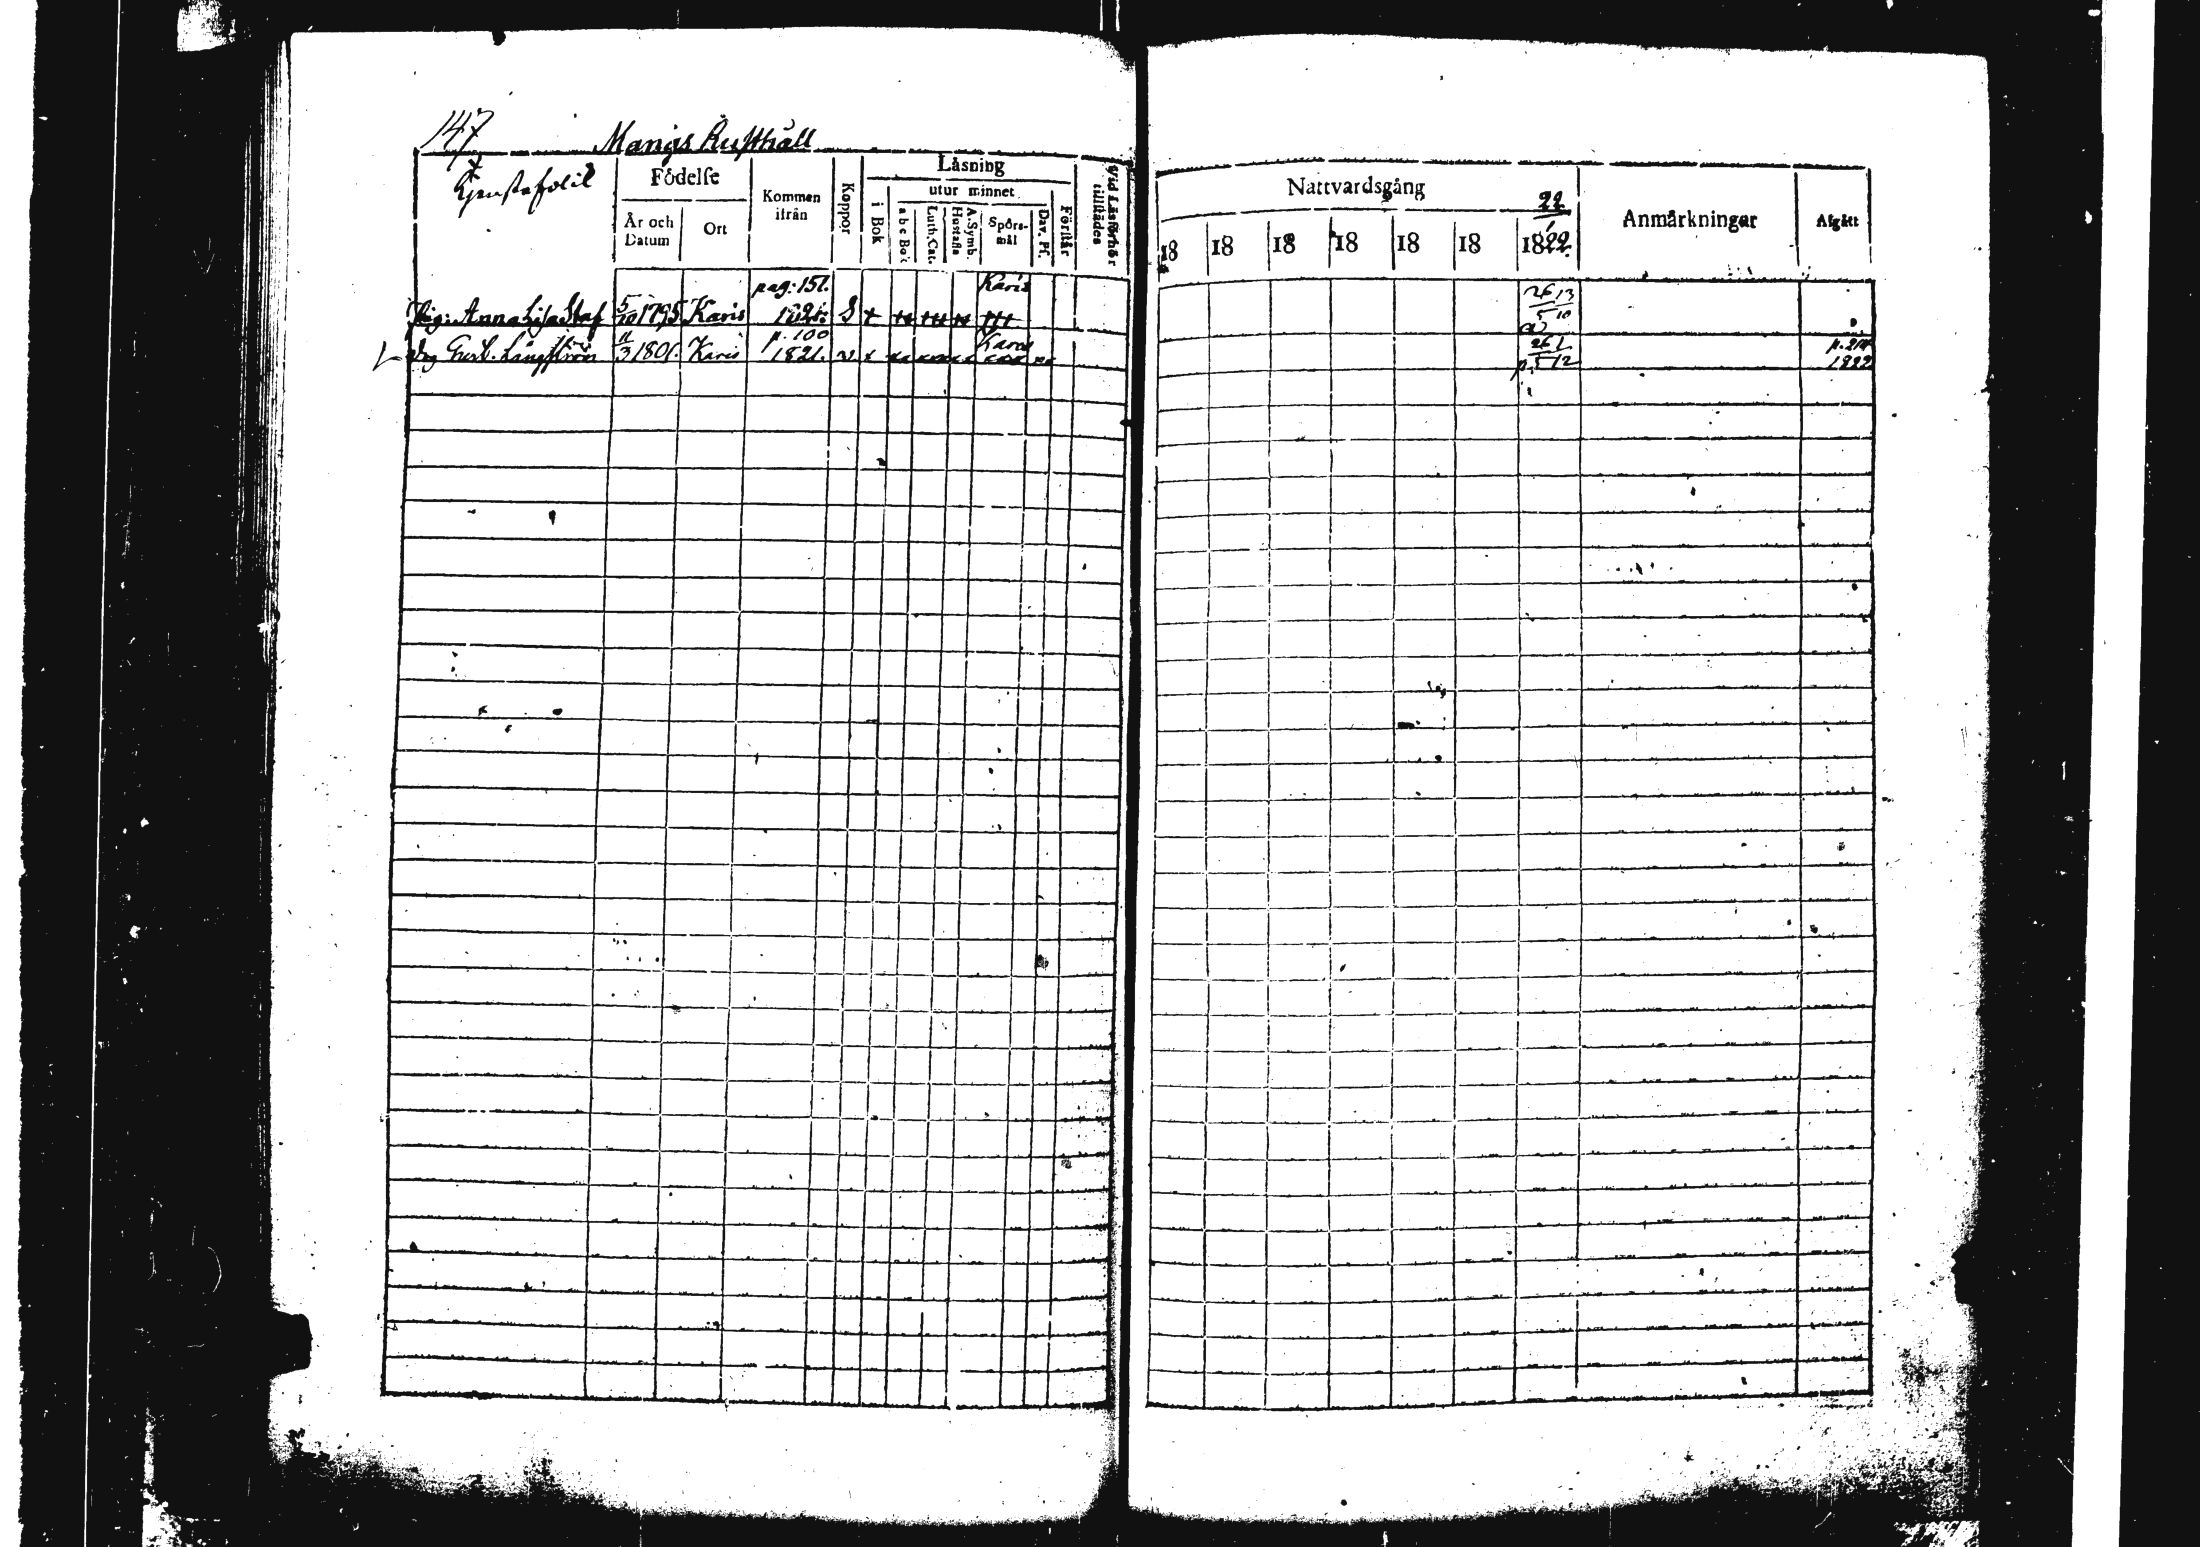 147
Mangs Rusthåll
Tjenstefolk
Födelse
År och Datum
Ort
Kommen ifrån
Koppor
Läsning
i Bok
utur minnet
a b c Bok
Luth. Cat.
A. Symb. Hustafla
Spörs-mål
Dav. Ps.
Förstår
Vid Läsförhör tillstädes
Nattvardsgång
22
18 18 18 18 18 18 1822.
Anmärkningar
Afgått
pag: 151. Karis
Pig: Anna Lisa Staf 5/10 1795 Karis 1821. S
26 13
5 10
p. 100 Karis
Drg Gust. Långström 3 1801. Karis 1821. v
26 1
5 12
p. 214
1822